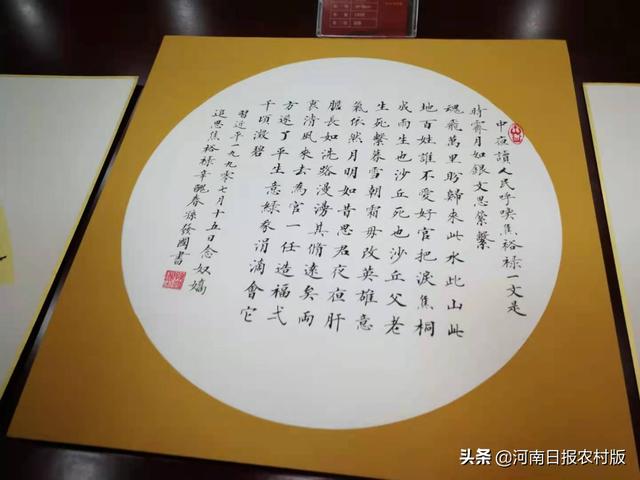 中夜讀人民呼喚焦裕祿一文是
時霽月如銀文思縈繫
魂飛萬里盼歸來此水此山此
地百姓誰不愛好官把淚焦桐
成雨生也沙丘死也沙丘父老
生死繫暮雪朝霜毋改英雄意
氣依然月明如昔思君夜夜肝
膽長如洗路漫漫其脩遠矣兩
袖清風來去為官一任造福弌
方遂了平生意綠我涓滴會它
千頃澂碧
習近平一九九〇七月十五日念奴嬌
追思焦裕祿辛醜春孫發國書
头条 @河南日报农村版